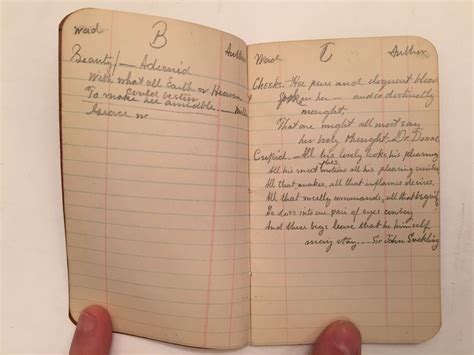 Word B Author
Beauty/— Adorned
With what all Earth or Heaven
could bestow
To make her amiable. — Milt
Grace w
Word C Author
Cheeks. Her pure and eloquent blood
Spoke in her — and so distinctly
wrought,
That one might almost say
her body thought — Dr. Donne
Cupid. — All his lovely looks, his pleasing
fires,
All his sweet motions all his pleasing smiles,
All that makes, all that inflames desires,
All that sweetly commands, all that
In into one pair of eyes convey
And there begs leave that he himself
may stay. — Sir John Suckling